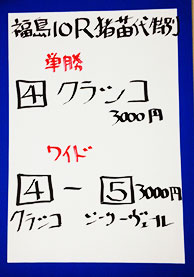 福島10R猪苗代特別
単勝
4 クラッコ
3000円
ワイド
4 - 5 3000円
クラッコ シーサーヴェール